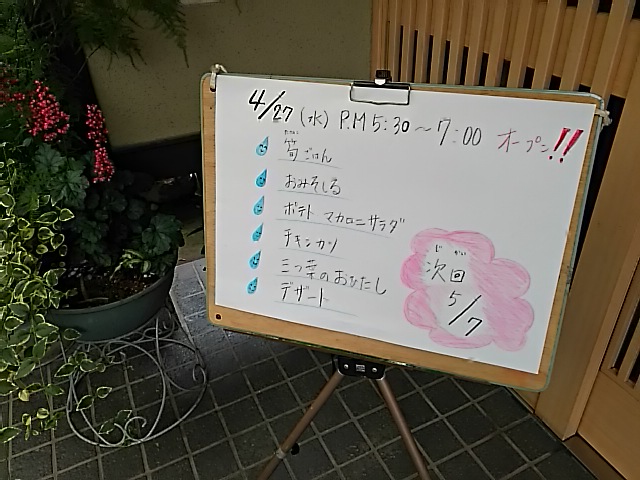 4/27 (水) P.M 5:30〜7:00 オープン!!
たけのこ
筍ごはん
おみそしる
ポテト マカロニサラダ
チキンカツ
三つ葉のおひたし
デザート
じ かい
次回
5/7